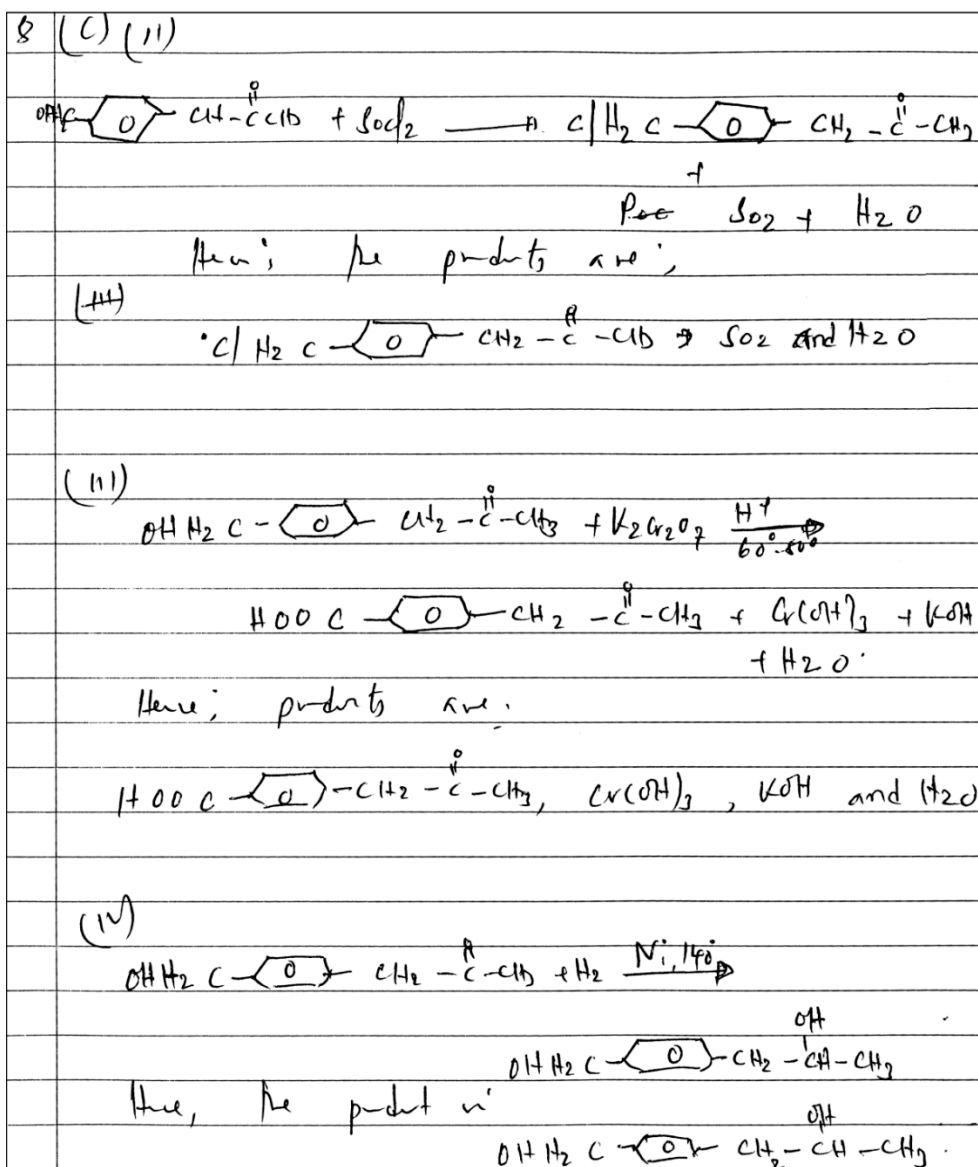 8 (C) (II)
OHH2C-⌬-CH2-C(=O)-CH3 + SOCl2 → ClH2C-⌬-CH2-C(=O)-CH3
+
SO2 + H2O
Hence; the products are;
(III)
ClH2C-⌬-CH2-C(=O)-CH3, SO2 and H2O
(III)
OHH2C-⌬-CH2-C(=O)-CH3 + K2Cr2O7 H+ →
HOOC-⌬-CH2-C(=O)-CH3 + Cr(OH)3 + KOH
+ H2O.
Hence; products are.
HOOC-⌬-CH2-C(=O)-CH3, Cr(OH)3, KOH and H2O
(IV)
OHH2C-⌬-CH2-C(=O)-CH3 + H2 Ni, 140° →
OHH2C-⌬-CH2-CH(OH)-CH3
Hence, the product is
OHH2C-⌬-CH2-CH(OH)-CH3.